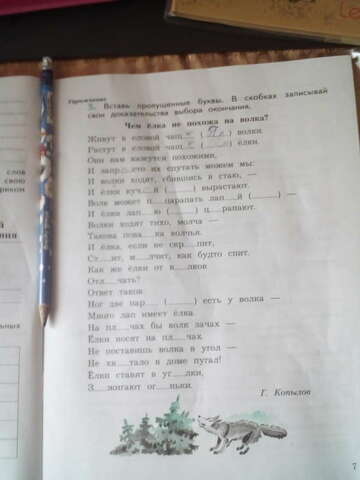 Le
слов
свою
риком
й
ания
льных
Упражнение
5. Вставь пропущенные буквы. В скобках записывай
свои доказательства выбора окончания.
Чем ёлка не похожа на волка?
Живут в еловой чащ_е (_) волки.
Растут в еловой чащ_е (_) ёлки.
Они нам кажутся похожими,
И запр_сто их спутать можем мы:
И волки ходят, сбившись в стаю, —
И ёлки куч_й (_) вырастают.
Волк может ц_царапать лап_й (_) —
И ёлки лап_ю (_) ц_рапают.
Волки ходят тихо, молча —
Такова пова_ка волчья.
И ёлка, если не скр_пит,
Ст_ит, м_лчит, как будто спит.
Как же ёлки от в_лков
Отл_чать?
Ответ таков:
Ног две пар_ (_) есть у волка —
Много лап имеет ёлка.
На пл_чах бы волк зачах —
Ёлки носят на пл_чах.
Не поставишь волка в угол —
Не хв_тало в доме пугал!
Ёлки ставят в уг_лки,
З_жигают ог_ньки.
Г. Копылов
7